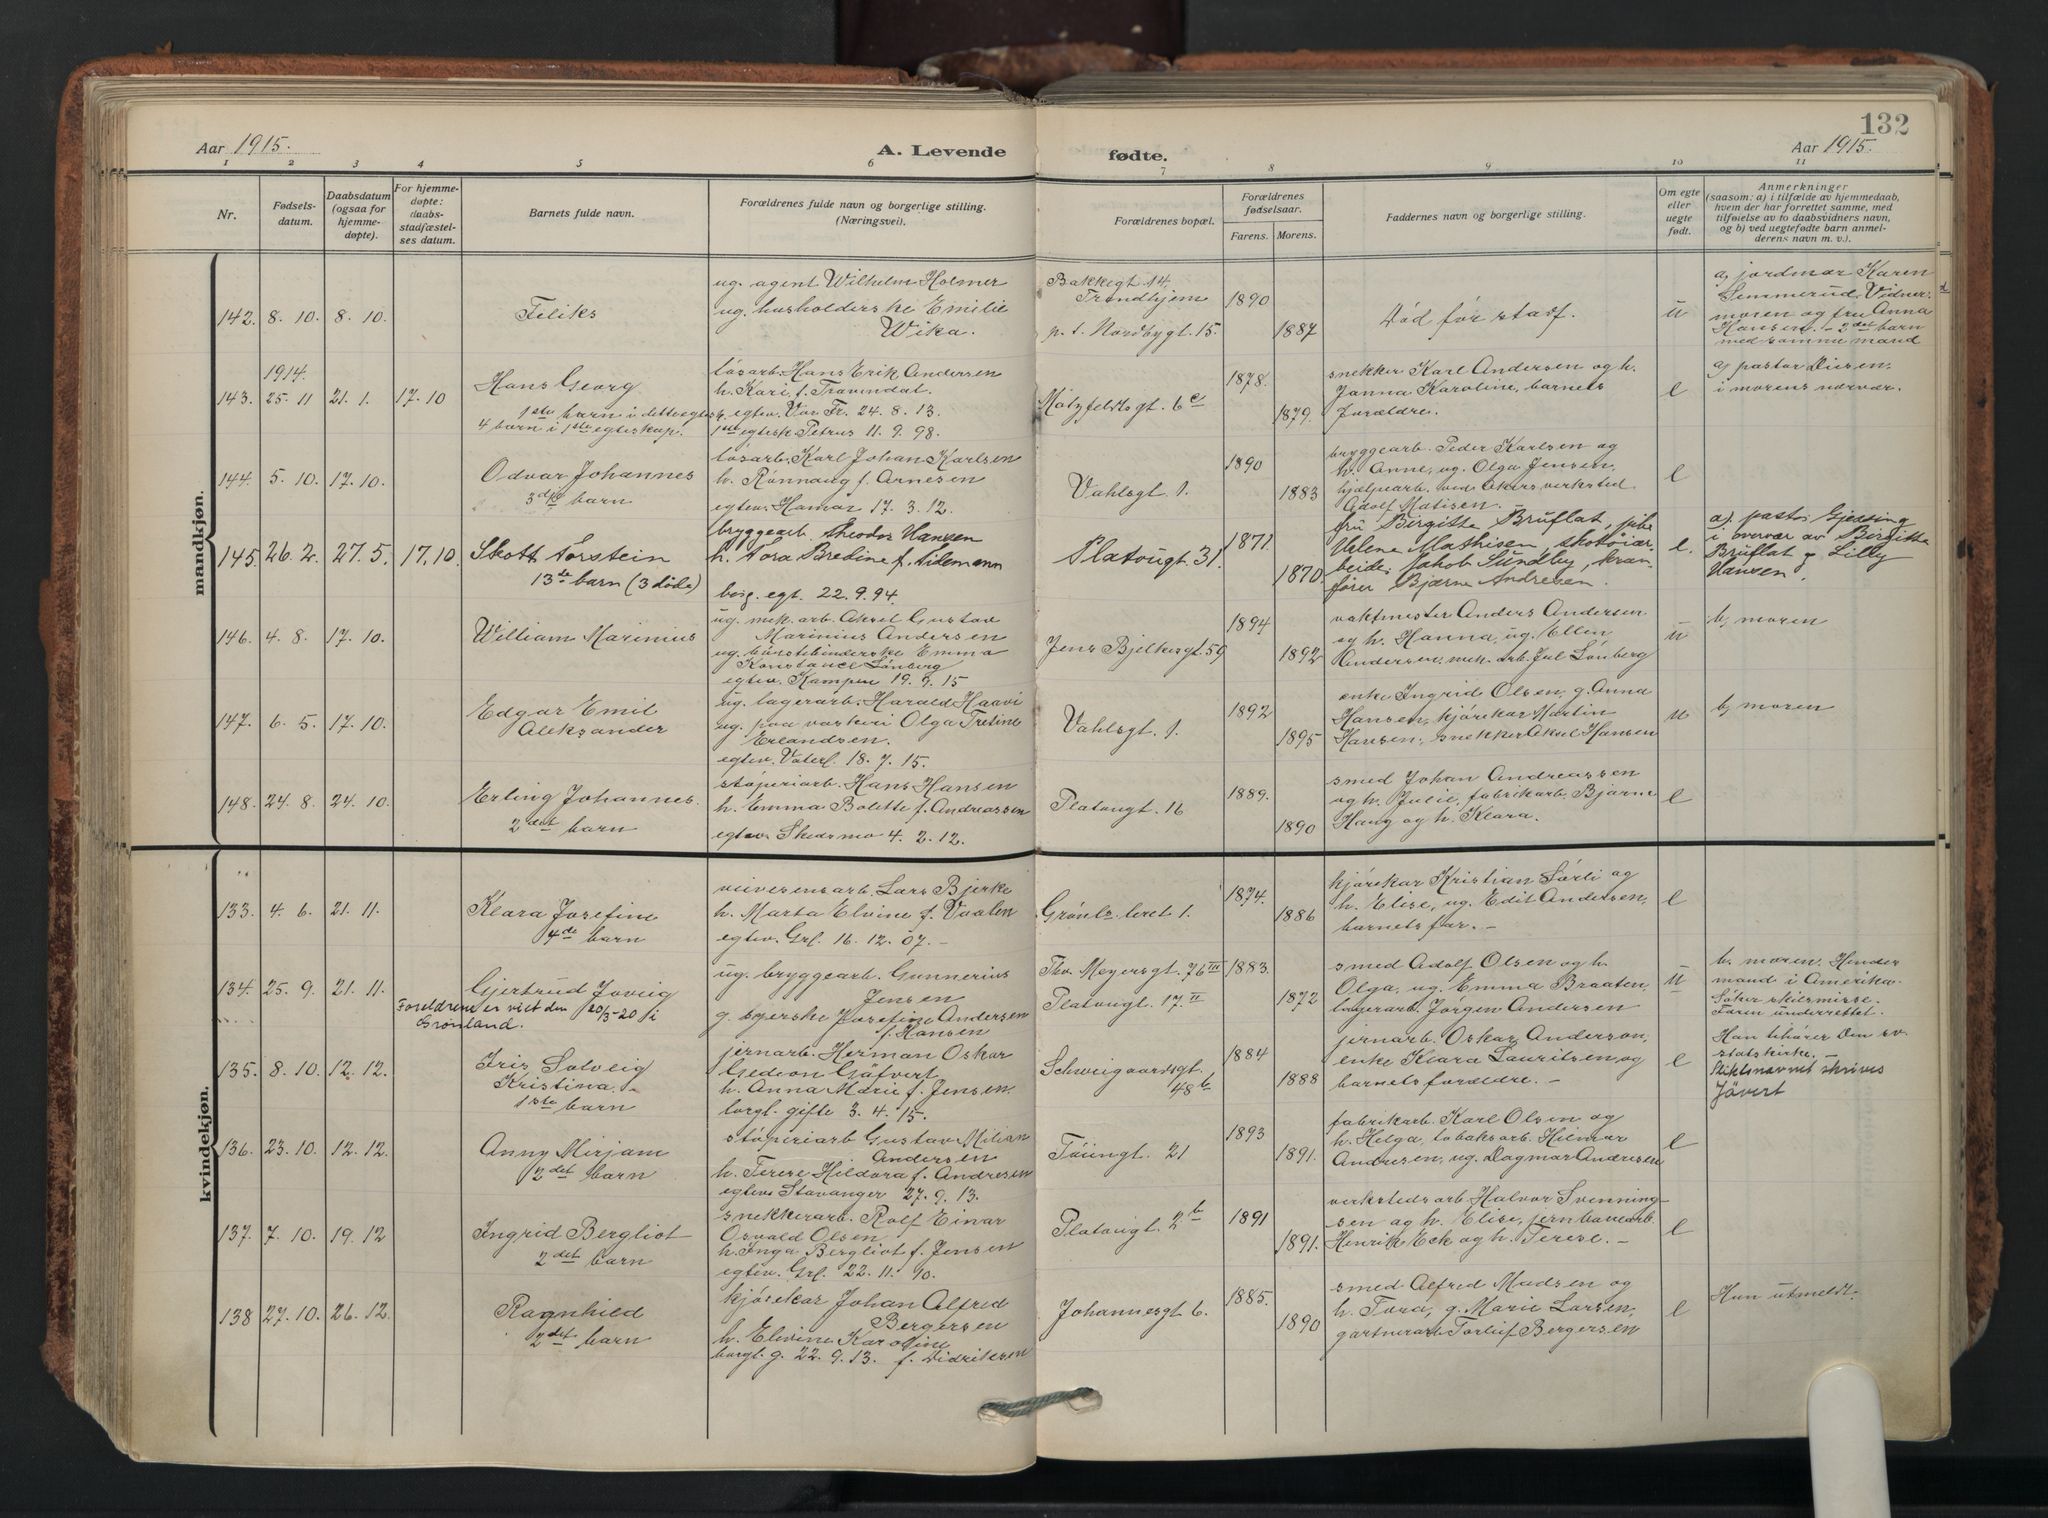 132
Aar 1915.
A. Levende
fødte.
Aar 1915.
1 2 3 4 5 6 7 8 9 10 11
Nr.
Fødsels-
datum.
Daabsdatum
(ogsaa for
hjemme-
døpte).
For hjemme-
døpte:
daabs-
stadfæstel-
ses datum.
Barnets fulde navn.
Forældrenes fulde navn og borgerlige stilling.
(Næringsvei).
Forældrenes bopæl.
Forældrenes
fødselsaar.
Farens. Morens.
Faddernes navn og borgerlige stilling.
Om egte
eller
uegte
født.
Anmerkninger
(saasom: a) i tilfælde av hjemmedaab,
hvem der har forrettet samme, med
tilføielse av to daabsvidners navn,
og b) ved uegtefødte barn anmel-
derens navn m. v.).
mandkjøn.
142. 8. 10. 8. 10.
Feliks
ug. agent Wilhelm Holmer
ug. husholderske Emilie
Wika.
Bakkegt 14
Trondhjem
p. t. Nordbygt. 15.
1890
1887
Død før starf.
u
a) jordmor Karen
Semmerud. Vidner:
moren og fru Anna
Hansen. - 2det barn
med samme mand
1914.
143. 25. 11 21. 1. 17. 10
Hans Georg
1ste barn i dette egtesk.
4 barn i 1ste egteskap.
løsarb. Hans Erik Andersen
h. Kari f. Travendal.
egtev. Vor Fr. 24. 8. 13.
1ste egtesk. Petrus 11. 9. 98.
Motzfeldtsgt. 6c
1878.
1879.
snekker Karl Andersen og h.
Janna Karoline, barnets
forældre.
e
a) pastor Diesen.
i morens nærvær.
144. 5. 10. 17. 10.
Odvar Johannes
3dje barn
løsarb. Karl Johan Karlsen
h. Rønnaug f. Arnesen
egtev. Hamar 17. 3. 12.
Vahlsgt. 1.
1890
1883
bryggearb. Peder Karlsen og
h. Anne, ug. Olga Jensen,
hjælpearb. ved Akers verksted
Adolf Matisen.
e
145. 26. 2. 27. 5. 17. 10.
Skott Torstein
13de barn (3 døde)
bryggearb. Theodor Hansen
h. Tora Bredine f. Tidemann
borg. egt. 22. 9. 94.
Platougt. 31.
1871.
1870.
fru Birgitte Bruflat, pike
Helene Mathisen, skotøiar-
beider Jakob Sundby, kran-
fører Bjarne Andresen.
e.
a). pastor Gjessing
i overvær av Birgitte
Bruflat og Lilly
Hansen.
146. 4. 8. 17. 10.
William Marinius
ug. mek. arb. Aksel Gustav
Marinius Andersen
ug. børstebinderske Emma
Konstance Lønberg
egtev. Kampen 19. 9. 15
Jens Bjelkesgt. 59
1894
1892
vaktmester Anders Andersen
og h. Hanna, ug. Ellen
Andersen, mek. arb. Jul Lønberg
u
b) moren
147. 6. 5. 17. 10.
Edgar Emil
Aleksander
ug. lagerarb. Harald Haavi
ug. paa vaskeri Olga Tretine
Erlandsen.
egtev. Vaterl. 18. 7. 15.
Vahlsgt. 1.
1892
1895
enke Ingrid Olsen, g. Anna
Hansen, kjørekar Martin
Hansen, snekker Aksel Hansen
u
b) moren
148. 24. 8. 24. 10.
Erling Johannes.
2det barn
støperiarb. Hans Hansen
h. Emma Bolette f. Andreassen
egtev. Skedsmo 4. 2. 12.
Platougt. 16
1889.
1890
smed Johan Andreassen
og h. Julie, fabrikarb. Bjarne
Haug og h. Klara.
e
kvindekjøn.
133. 4. 6. 21. 11.
Klara Josefine
4de barn
veivesensarb. Lars Bjerke
h. Marta Elvine f. Vaalen
egtev. Grl. 16. 12. 07. -
Grønlsleret 1.
1874.
1886
kjørekar Kristian Sørli og
h. Elise, ug. Edit Andersen,
barnets far. -
e
134. 25. 9. 21. 11.
Gjertrud Joveig
Foreldrene er viet den 20/3-20 i
Grønland.
ug. bryggearb. Gunnerius
Jensen
g. syerske Josefine Andersen
f. Hansen
Thv. Meyersgt. 76 III
Platougt. 17 II
1883.
1872
smed Adolf Olsen og h.
Olga, ug. Emma Braaten,
lagerarb. Jørgen Andersen
u
b. moren. Hendes
mand i Amerika.
Søker skilsmisse.
Faren underrettet.
135. 8. 10. 12. 12.
Iris Solveig
Kristina.
1ste barn
jernarb. Herman Oskar
Gedeon Gäfvert
h. Anna Marie f. Jensen.
borgl. gifte 3. 4. 15.
Schweigaardsgt.
48b
1884
1888
jernarb. Oskar Anderson,
enke Klara Lauritsen og
barnets forældre. -
e
Han tilhører den sv.
statskirke. -
Slektsnavnet skrives
Jävert
136. 23. 10. 12. 12.
Anny Mirjam
2det barn
støperiarb Gustav Milian
Andersen
h. Terese Hildora f. Andresen
egtev. Stavanger 27. 9. 13.
Tøiengt. 21
1893
1891.
fabrikarb. Karl Olsen og
h. Helga, tobaksarb. Hilmar
Andresen, ug. Dagmar Andresen
e
137. 7. 10. 19. 12
Ingrid Bergliot
2det barn
snekkerarb. Rolf Einar
Osvald Olsen
h. Inga Bergliot f. Jensen
egtev. Grl. 22. 11. 90.
Platougt. 2b
1891
1891.
verkstedsarb Halvor Svenning-
sen og h. Elise, jernbanearb.
Henrik Eck og h. Terese. -
e
138 27. 10. 26. 12.
Ragnhild
2det barn
kjørekar Johan Alfred
Bergersen
h. Elvine Karoline
borgl. g. 22. 9. 13. f. Didriksen
Johannesgt 6.
1885.
1890
smed Alfred Madsen og
h. Tora, g. Marie Larsen,
gartnerarb Torluf Bergersen
e
Hun utmeldt.